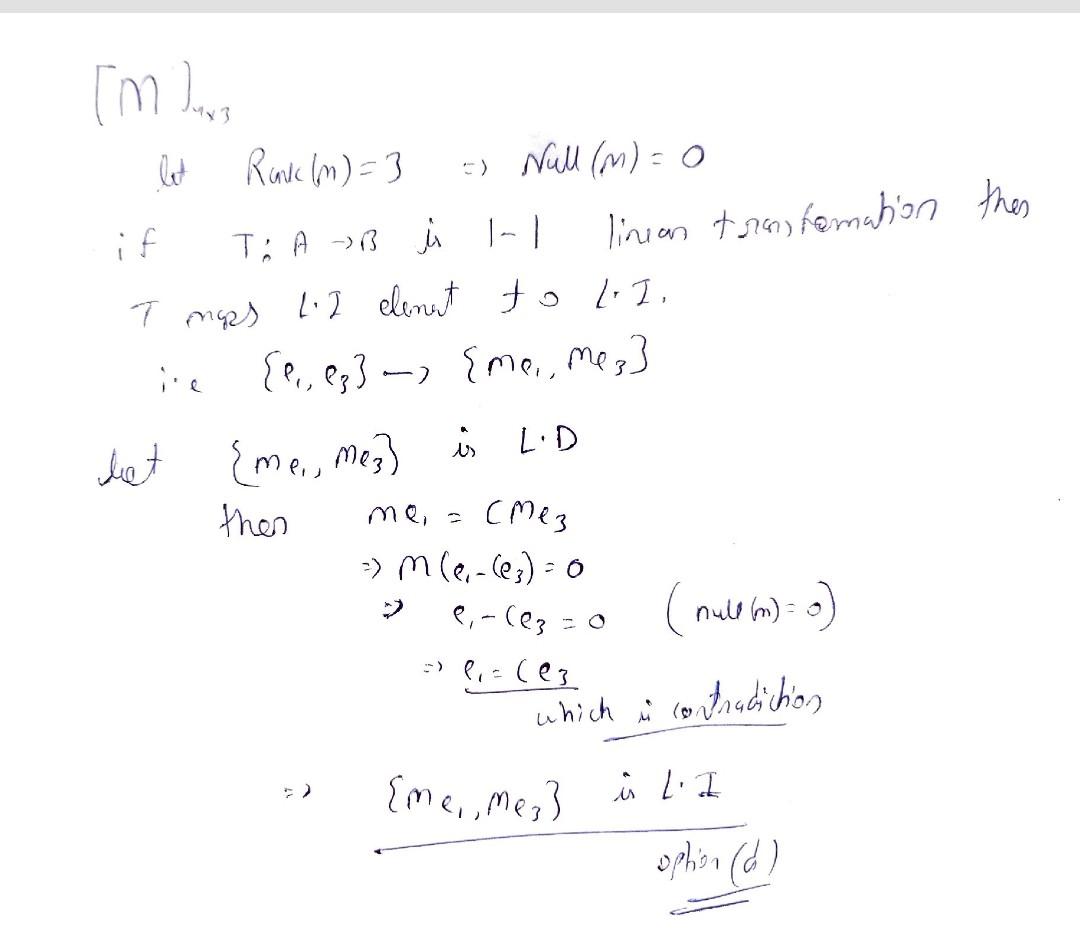 [M]₄ₓ₃
let Rank(m) = 3 => Null (m) = 0
if T: A → B is 1-1 linear transformation then
T maps L.I element to L.I.
i.e {e₁, e₃} → {me₁, Me₃}
let {me₁, me₃} is L.D
then me₁ = CMe₃
=> M(e₁ - Ce₃) = 0
=> e₁ - Ce₃ = 0 (null (m) = 0)
=> e₁ = Ce₃
which is contradiction
=> {me₁, Me₃} is L.I
option (d)